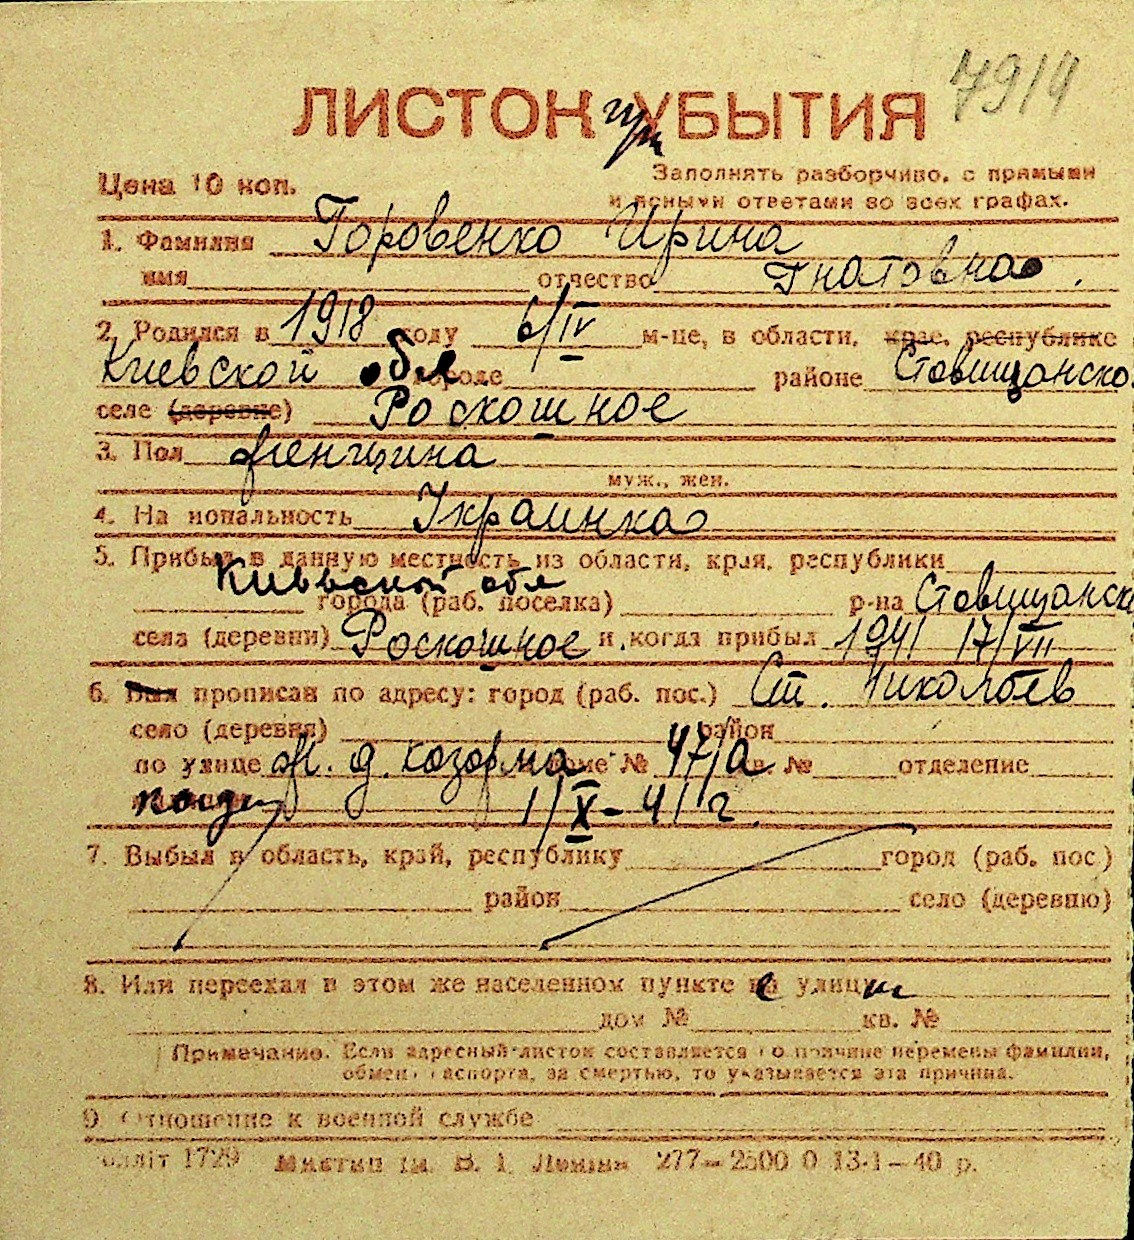 7914
ЛИСТОК при УБЫТИЯ
Цена 10 коп.
Заполнять разборчиво, с прямыми
и ясными ответами во всех графах.
1. Фамилия Горовенко Ирина
имя отчество Гнатовна.
2. Родился в 1918 году 6/IV м-це, в области, крае, республике
Киевской обл городе районе Ставищанско
селе (деревне) Роскошное
3. Пол женщина
муж., жен.
4. Национальность Украинка
5. Прибыл в данную местность из области, края, республики
Киевской обл
города (раб. поселка) р-на Ставищанск
села (деревни) Роскошное и когда прибыл 1941 17/VII
6. Был прописан по адресу: город (раб. пос.) Ст. Николаев
село (деревня) район
по улице ж. д. козарма доме № 47/а кв. № отделение
1/X-41 г.
7. Выбыл в область, край, республику город (раб. пос.)
район село (деревню)
8. Или переехал в этом же населенном пункте с улицы
дом № кв. №
Примечание. Если адресный листок составляется по причине перемены фамилии,
обмена паспорта, за смертью, то указывается эта причина.
9. Отношение к военной службе
1729 ім. В. І. Леніна 277—2500 0 13-1—40 р.